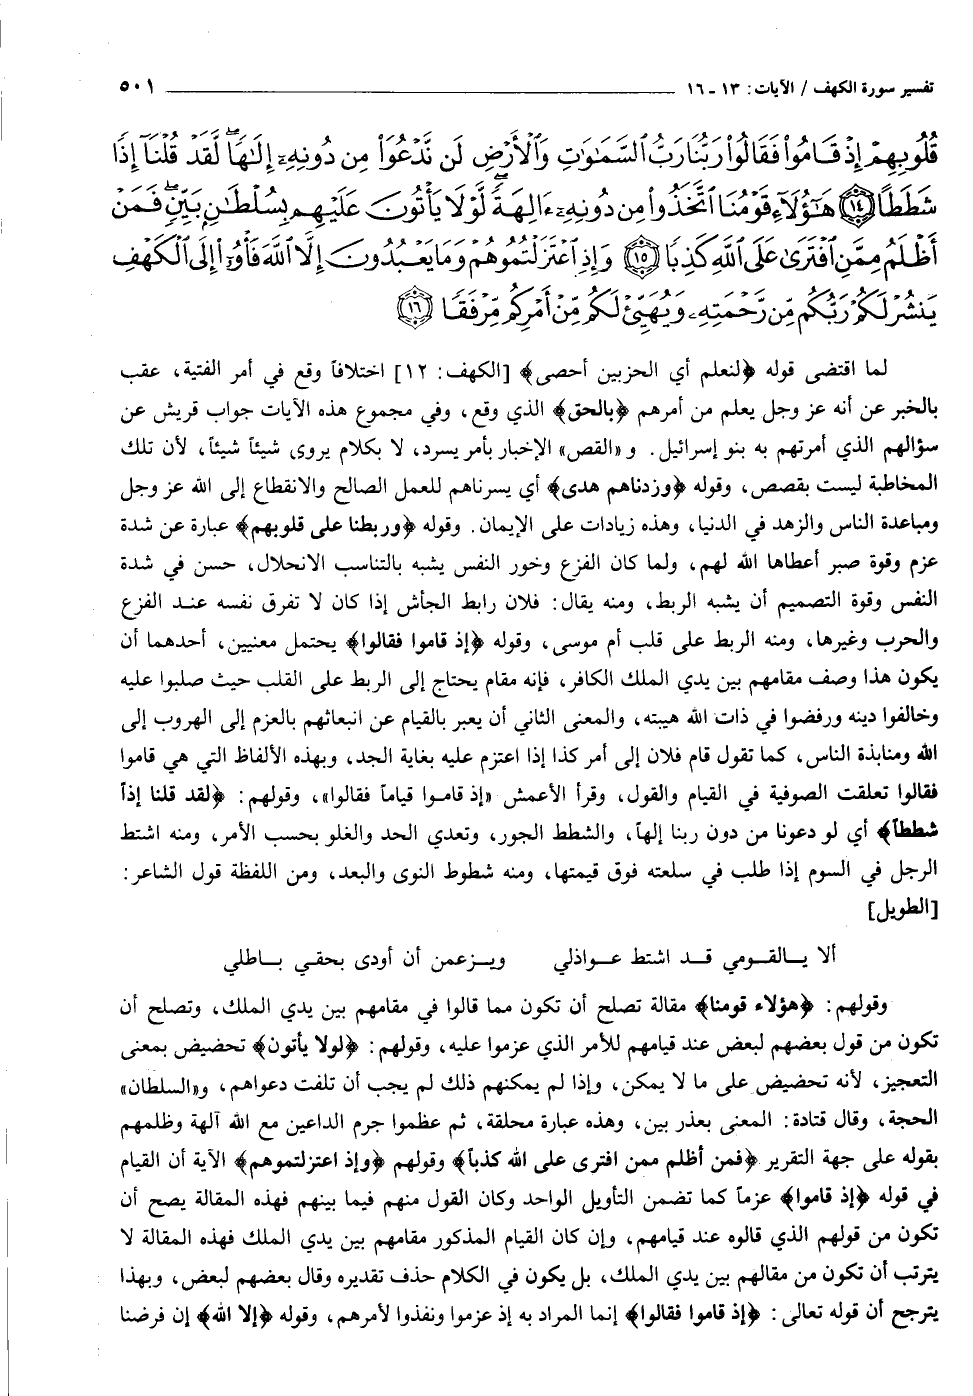 تفسير سورة الكهف / الآيات: ١٣ - ١٦ ٥٠١
قُلُوبِهِمْ إِذْ قَامُوا۟ فَقَالُوا۟ رَبُّنَا رَبُّ ٱلسَّمَٰوَٰتِ وَٱلْأَرْضِ لَن نَّدْعُوَا۟ مِن دُونِهِۦٓ إِلَٰهًا ۖ لَّقَدْ قُلْنَآ إِذًا
شَطَطًا ١٤ هَٰٓؤُلَآءِ قَوْمُنَا ٱتَّخَذُوا۟ مِن دُونِهِۦٓ ءَالِهَةً ۖ لَّوْلَا يَأْتُونَ عَلَيْهِم بِسُلْطَٰنٍۭ بَيِّنٍ ۖ فَمَنْ
أَظْلَمُ مِمَّنِ ٱفْتَرَىٰ عَلَى ٱللَّهِ كَذِبًا ١٥ وَإِذِ ٱعْتَزَلْتُمُوهُمْ وَمَا يَعْبُدُونَ إِلَّا ٱللَّهَ فَأْوُۥٓا۟ إِلَى ٱلْكَهْفِ
يَنشُرْ لَكُمْ رَبُّكُم مِّن رَّحْمَتِهِۦ وَيُهَيِّئْ لَكُم مِّنْ أَمْرِكُم مِّرْفَقًا ١٦
لما اقتضى قوله ﴿لنعلم أي الحزبين أحصى﴾ [الكهف: ١٢] اختلافاً وقع في أمر الفتية، عقب
بالخبر عن أنه عز وجل يعلم من أمرهم ﴿بالحق﴾ الذي وقع، وفي مجموع هذه الآيات جواب قريش عن
سؤالهم الذي أمرتهم به بنو إسرائيل. و «القص» الإخبار بأمر يسرد، لا بكلام يروى شيئاً شيئاً، لأن تلك
المخاطبة ليست بقصص، وقوله ﴿وزدناهم هدى﴾ أي يسرناهم للعمل الصالح والانقطاع إلى الله عز وجل
ومباعدة الناس والزهد في الدنيا، وهذه زيادات على الإيمان. وقوله ﴿وربطنا على قلوبهم﴾ عبارة عن شدة
عزم وقوة صبر أعطاها الله لهم، ولما كان الفزع وخور النفس يشبه بالتناسب الانحلال، حسن في شدة
النفس وقوة التصميم أن يشبه الربط، ومنه يقال: فلان رابط الجأش إذا كان لا تفرق نفسه عند الفزع
والحرب وغيرها، ومنه الربط على قلب أم موسى، وقوله ﴿إذ قاموا فقالوا﴾ يحتمل معنيين، أحدهما أن
يكون هذا وصف مقامهم بين يدي الملك الكافر، فإنه مقام يحتاج إلى الربط على القلب حيث صلبوا عليه
وخالفوا دينه ورفضوا في ذات الله هيبته، والمعنى الثاني أن يعبر بالقيام عن انبعاثهم بالعزم إلى الهروب إلى
الله ومنابذة الناس، كما تقول قام فلان إلى أمر كذا إذا اعتزم عليه بغاية الجد، وبهذه الألفاظ التي هي قاموا
فقالوا تعلقت الصوفية في القيام والقول، وقرأ الأعمش «إذ قاموا قياماً فقالوا»، وقولهم: ﴿لقد قلنا إذاً
شططاً﴾ أي لو دعونا من دون ربنا إلهاً، والشطط الجور، وتعدي الحد والغلو بحسب الأمر، ومنه اشتط
الرجل في السوم إذا طلب في سلعته فوق قيمتها، ومنه شطوط النوى والبعد، ومن اللفظة قول الشاعر:
[الطويل]
ألا يالقومي قد اشتط عواذلي ويزعمن أن أودى بحقي باطلي
وقولهم: ﴿هؤلاء قومنا﴾ مقالة تصلح أن تكون مما قالوا في مقامهم بين يدي الملك، وتصلح أن
تكون من قول بعضهم لبعض عند قيامهم للأمر الذي عزموا عليه، وقولهم: ﴿لولا يأتون﴾ تحضيض بمعنى
التعجيز، لأنه تحضيض على ما لا يمكن، وإذا لم يمكنهم ذلك لم يجب أن تلفت دعواهم، و«السلطان»
الحجة، وقال قتادة: المعنى بعذر بين، وهذه عبارة محلقة، ثم عظموا جرم الداعين مع الله آلهة وظلمهم
بقوله على جهة التقرير ﴿فمن أظلم ممن افترى على الله كذباً﴾ وقولهم ﴿وإذ اعتزلتموهم﴾ الآية أن القيام
في قوله ﴿إذ قاموا﴾ عزماً كما تضمن التأويل الواحد وكان القول منهم فيما بينهم فهذه المقالة يصح أن
تكون من قولهم الذي قالوه عند قيامهم، وإن كان القيام المذكور مقامهم بين يدي الملك فهذه المقالة لا
يترتب أن تكون من مقالهم بين يدي الملك، بل يكون في الكلام حذف تقديره وقال بعضهم لبعض، وبهذا
يترجح أن قوله تعالى: ﴿إذ قاموا فقالوا﴾ إنما المراد به إذ عزموا ونفذوا لأمرهم، وقوله ﴿إلا الله﴾ إن فرضنا